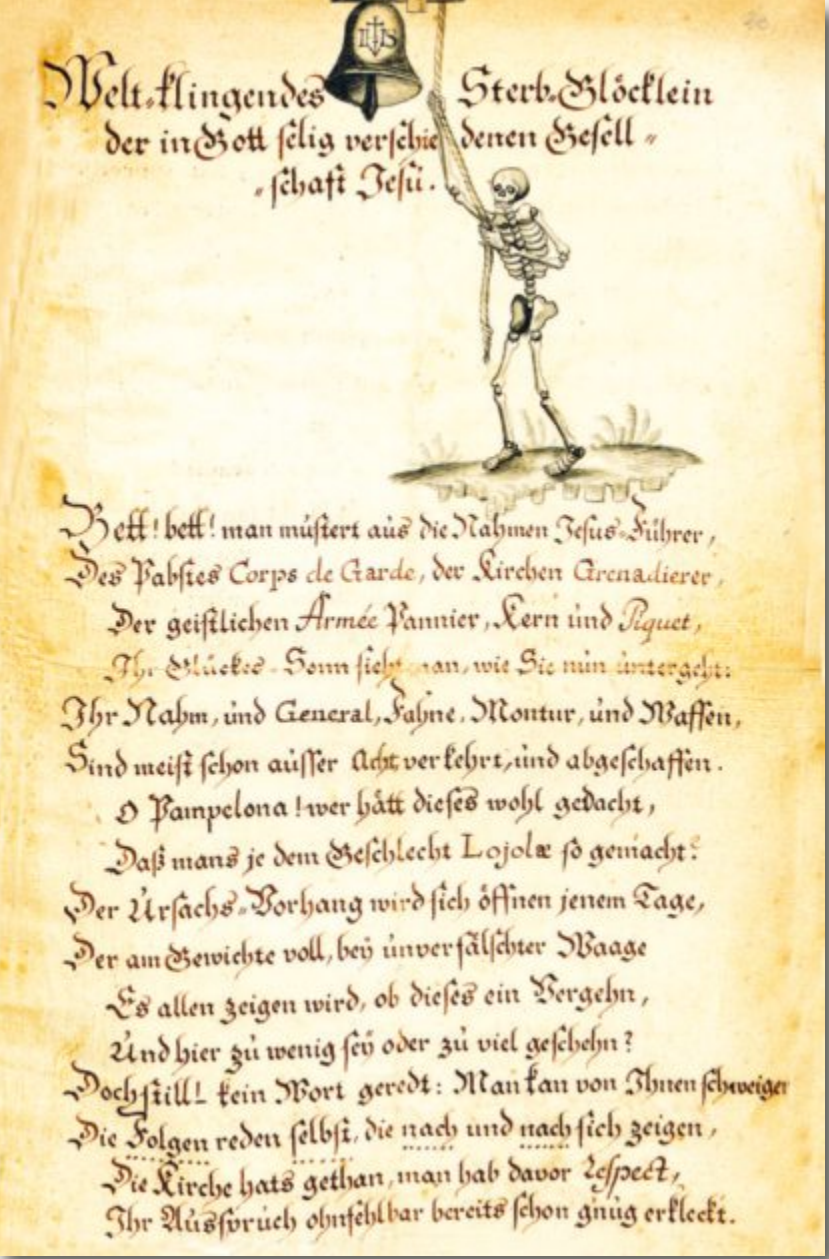 IHS
Welt-klingendes Sterb-Glöcklein
der in Gott selig verschiedenen Gesell-
-schaft Jesu.
Bett! bett! man mustert aus die Nahmen Jesus-Führer,
Des Pabstes Corps de Garde, der Kirchen Grenadierer,
Der geistlichen Armée Pannier, Kern und Piquet,
Ihr Glückes-Sonn sieht man, wie Sie nun untergeht:
Ihr Nahm, und General, Fahne, Montur, und Waffen,
Sind meist schon ausser Acht verkehrt, und abgeschaffen.
O Pampelona! wer hätt dieses wohl gedacht,
Daß mans je dem Geschlecht Lojolæ so gemacht?
Der Ursachs-Vorhang wird sich öffnen jenem Tage,
Der am Gewichte voll, bey unverfälschter Waage
Es allen zeigen wird, ob dieses ein Vergehn,
Und hier zu wenig sey oder zu viel geschehn?
Doch still! kein Wort geredt: Man kan von Ihnen schweigen
Die Folgen reden selbst, die nach und nach sich zeigen,
Die Kirche hats gethan, man hab davor Respect,
Ihr Ausspruch ohnfehlbar bereits schon gnug erkleckt.